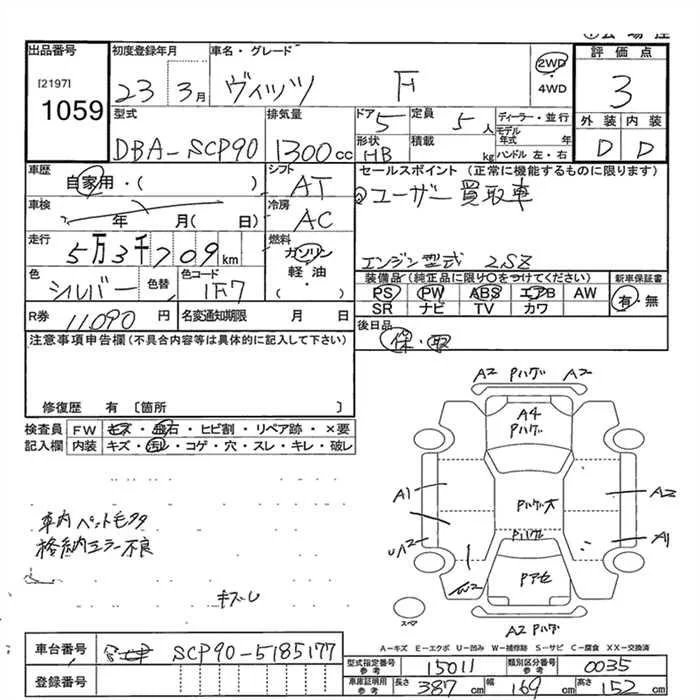 出品番号 初度登録年月 車名・グレード 評価点
[2197]
1059
23 3月 ヴィッツ F 2WD・4WD 3
型式 排気量 ドア 5 定員 5人 ディーラー・並行 外装 内装
DBA-SCP90 1300cc 形状 HB 積載 kg モデル年式 年 ハンドル 左・右 D D
車歴 シフト セールスポイント (正常に機能するものに限ります)
自家用・( ) AT ユーザー買取車
車検 冷房
年 月( 日) AC
走行 燃料
5万3千709km ガソリン・軽油・( ) エンジン型式 2SZ
色 色替 色コード 装備品(純正品に限り○をつけてください) 新車保証書
シルバー 1F7 PS PW ABS エアB AW 有・無
SR ナビ TV カワ
R券 11090円 名変通知期限 月 日 後日品
保・取
注意事項申告欄(不具合内容等は具体的に記入して下さい)
修復歴 有〔箇所 〕
検査員記入欄 FW キズ・飛石・ヒビ割・リペア跡・×要
内装 キズ・汚れ・コゲ・穴・スレ・キレ・破レ
車内 ペット毛
格納ミラー不良
A2 Pハゲ A2
A4
Pハゲ
A1 Pハゲ大 A2
Pハゲ
A1
Pアセ
スペア
A2 Pハゲ
A-キズ E-エクボ U-凹み W-補修跡 S-サビ C-腐食 XX-交換済
車台番号 SCP90-5185177
登録番号
型式指定番号 参考 15011 類別区分番号 参考 0035
車庫証明用 参考 長さ 387cm 幅 169cm 高さ 152cm